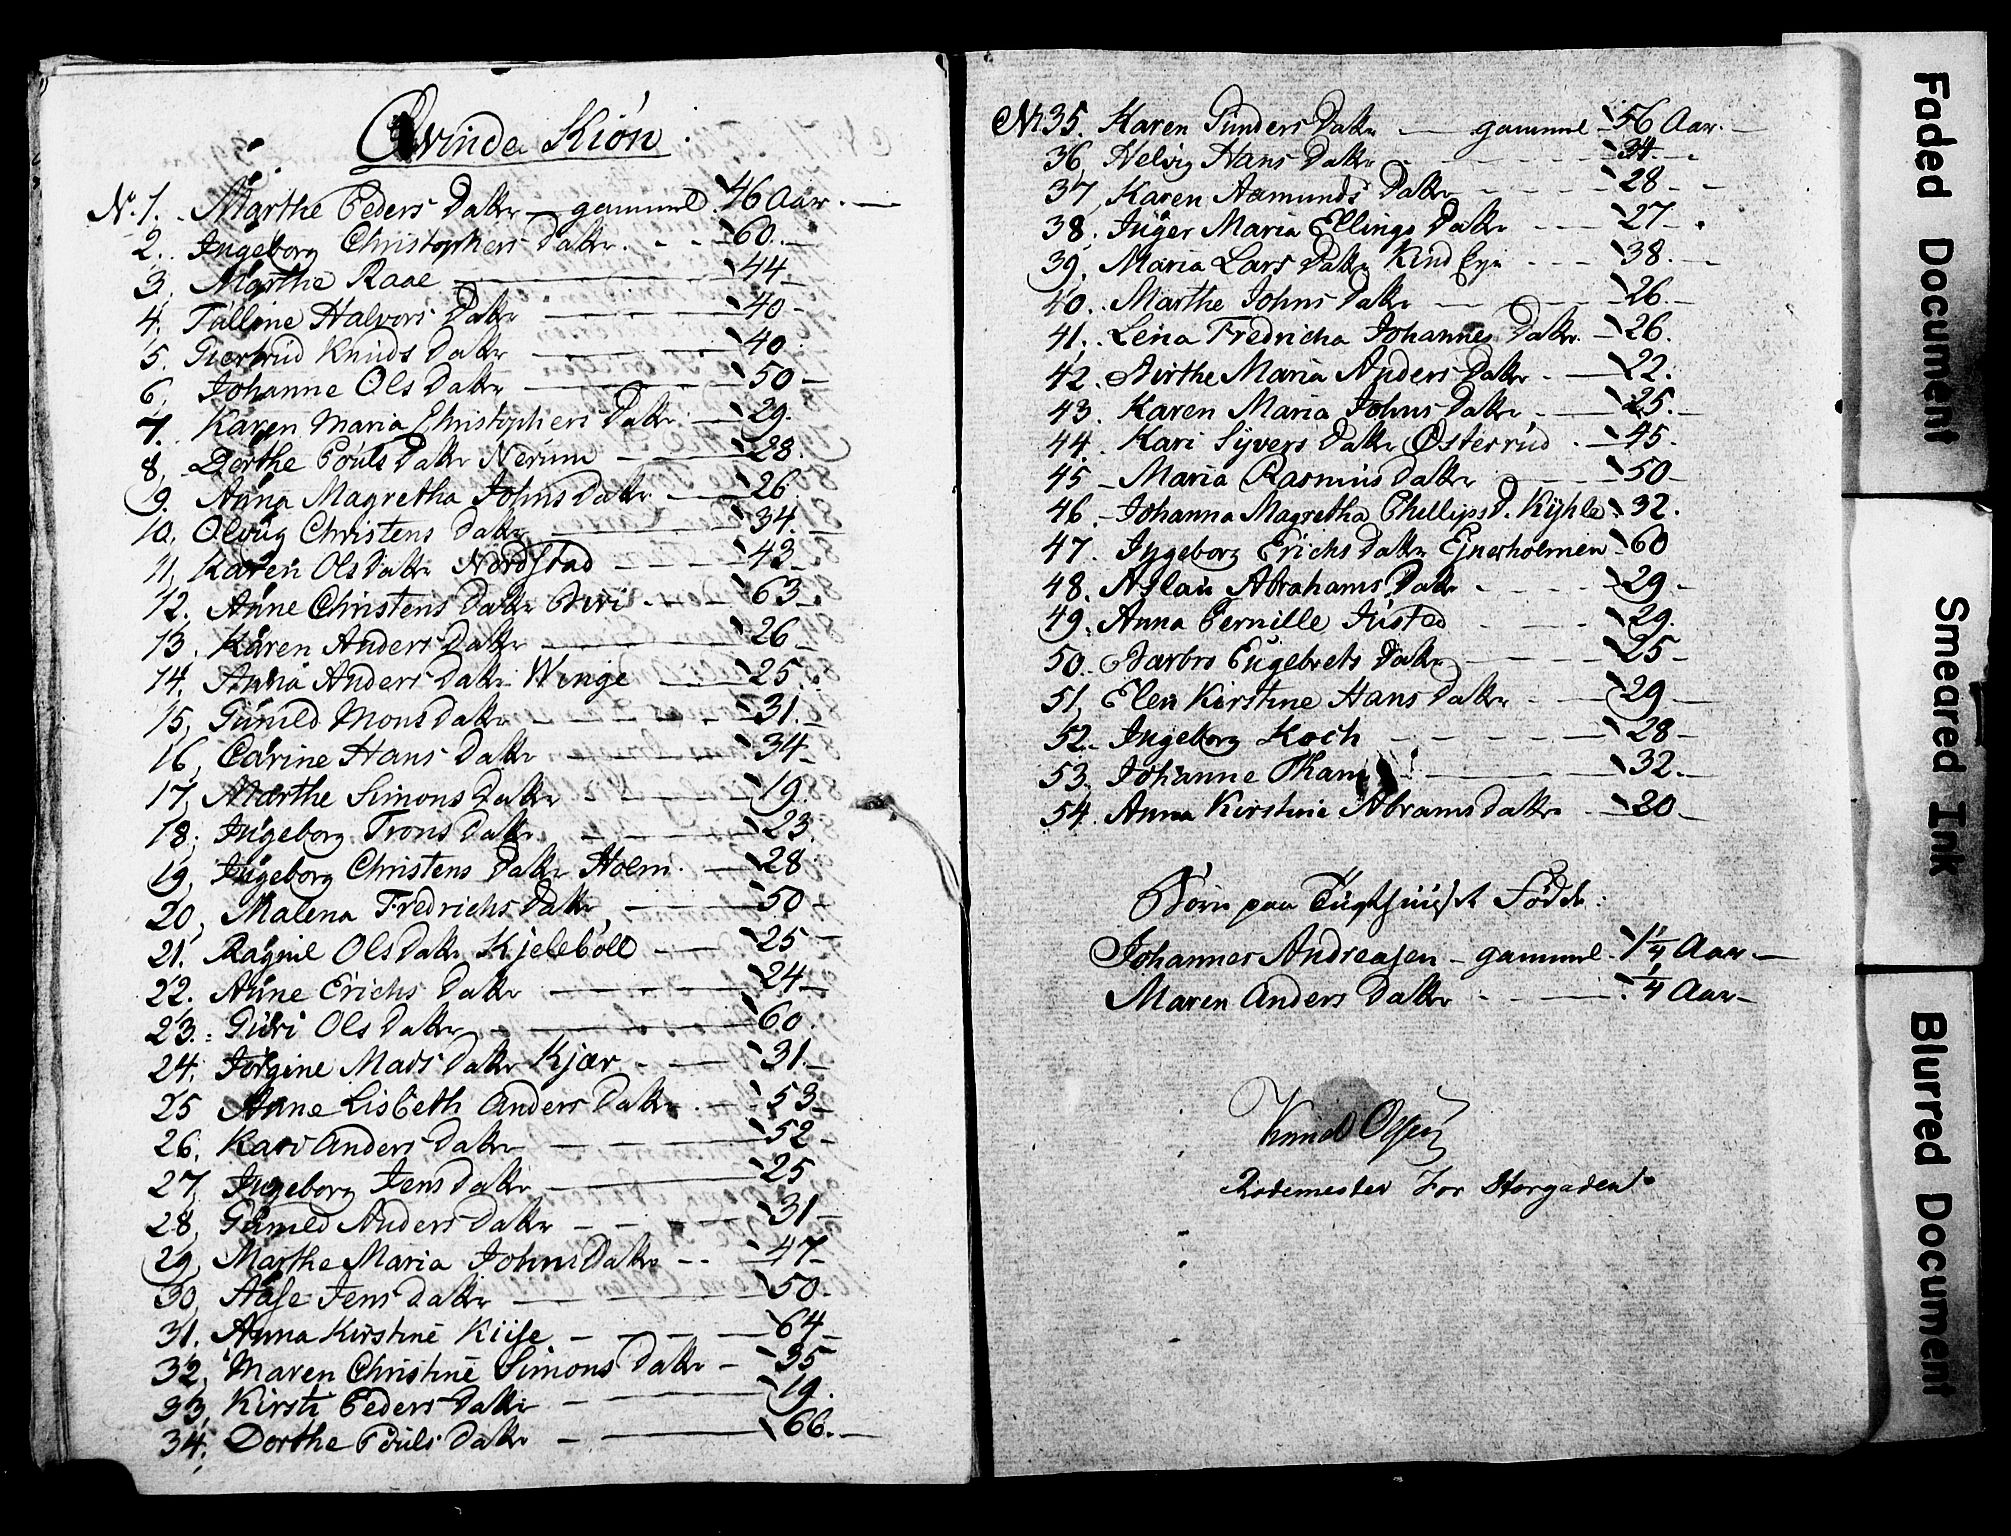 Qvinde Kiön
N. 1. Marthe Peders Datter gammel 46 Aar.
2. Ingeborg Christophers Datter 60.
3. Marthe Raae 44
4. Tulline Halvors Datter 40
5. Giertrud Knuds Datter 40
6. Johanne Ols Datter 50
7. Karen Maria Christophers Datter 29.
8. Dorthe Pouls Datter Nerum 28.
9. Anna Magretha Johns Datter 26
10. Olvug Christens Datter 34.
11. Karen Ols Datter Nordstad 43
12. Anne Christens Datter Beri 63
13. Karen Anders Datter 26
14. Anna Anders Datter Winge 25.
15. Guneld Mons Datter 31.
16. Carine Hans Datter 34
17. Marthe Simons Datter 19.
18. Ingeborg Trons Datter 23
19. Ingeborg Christens Datter Holm. 28
20. Malena Fredrichs Datter 50
21. Ragnil Ols Datter Kjeleböll 25
22. Anne Erichs Datter 24
23. Guri Ols Datter 60.
24. Jörgine Mads Datter Kjær 31.
25 Anne Lisbeth Anders Datter 53
26. Kari Anders Datter 52
27. Ingeborg Jens Datter 25
28. Guneld Anders Datter 31
29. Marthe Maria Johns Datter 47
30. Aase Jens Datter 50.
31. Anna Kirstine Kiise 64
32. Maren Christine Simons Datter 35
33. Kirsti Peders Datter 19.
34. Dorthe Pouls Datter 66.
N. 35. Karen Gunders Datter gammel 56 Aar.
36. Helvig Hans Datter 34.
37. Karen Aamunds Datter 28
38. Inger Maria Ellings Datter 27
39. Maria Lars Datter Kind Eye 38.
40. Marthe Johns Datter 26.
41. Lena Fredricha Johannes Datter 26.
42. Birthe Maria Anders Datter 22.
43. Karen Maria Johns Datter 25.
44. Kari Syvers Datter Österrud 45.
45 Maria Rasmus Datter 50
46. Johanna Magretha Phellips D. Kyhle 32.
47. Ingeborg Erichs Datter Ejnerholmen 60
48. Aslau Abrahams Datter 29
49. Anna Pernille Justed 29.
50. Barbro Engebrets Datter 25
51. Elen Kirstine Hans Datter 29
52. Ingeborg Koch 28
53. Johanne Tham 32.
54. Anna Kirstine Abrams Datter 20
Börn paa Tugthuuset Födde:
Johannes Andreasen gammel 1 1/4 Aar
Maren Anders Datter 1/4 Aar
Knud Olsen
Rodemester for Storgaden
Faded Document
Smeared Ink
Blurred Document